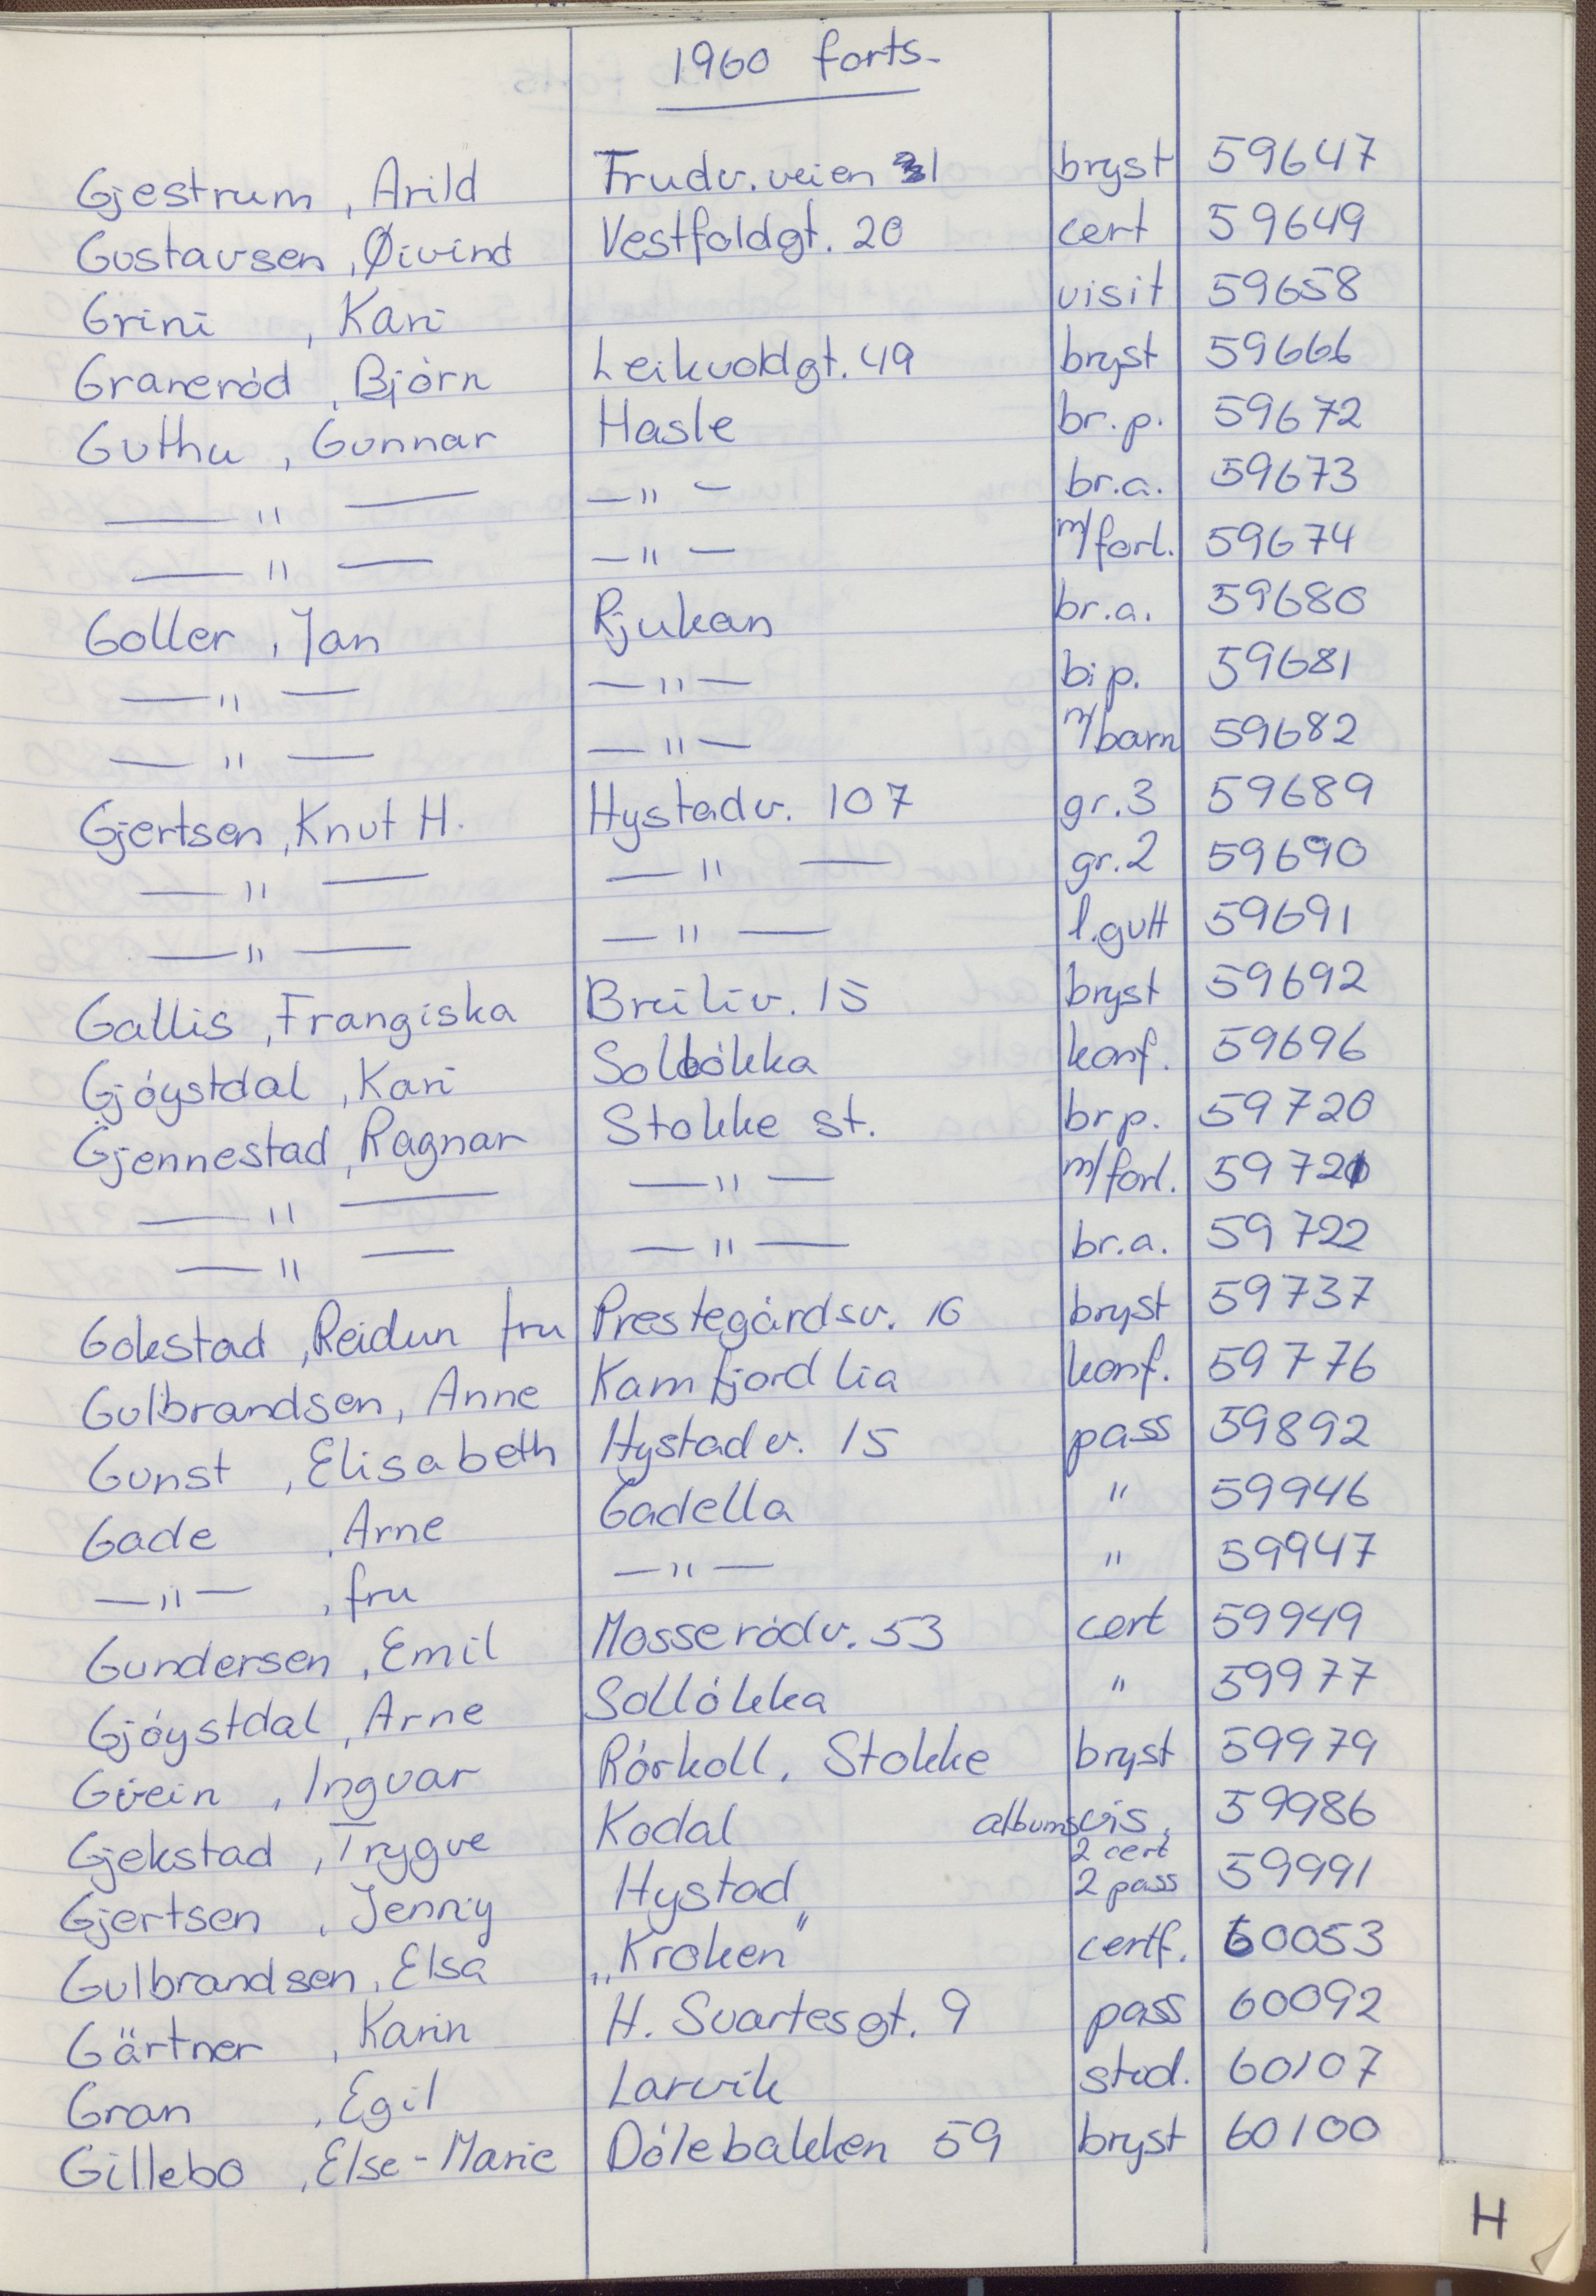 1960 forts.
Gjestrum, Arild Frudv. veien 31 bryst 59647
Gustavsen, Øivind Vestfoldgt. 20 cert 59649
Grini, Kari visit 59658
Granerød, Bjørn Leikvoldgt. 49 bryst 59666
Guthu, Gunnar Hasle br.p. 59672
— " — — " — br.a. 59673
— " — — " — m/forl. 59674
Goller, Jan Rjukan br.a. 59680
— " — — " — bi p. 59681
— " — — " — m/barn 59682
Gjertsen, Knut H. Hystadv. 107 gr.3 59689
— " — — " — gr.2 59690
— " — — " — l.gutt 59691
Gallis, Frangiska Breiliv. 15 bryst 59692
Gjøystdal, Kari Solløkka konf. 59696
Gjennestad, Ragnar Stokke st. br p. 59720
— " — — " — m/forl. 59721
— " — — " — br.a. 59722
Gokstad, Reidun fru Prestegårdsv. 16 bryst 59737
Gulbrandsen, Anne Kamfjordlia konf. 59776
Gunst, Elisabeth Hystadv. 15 pass 59892
Gade, Arne Gadella " 59946
— " —, fru — " — " 59947
Gundersen, Emil Mosserødv. 53 cert 59949
Gjøystdal, Arne Solløkka " 59977
Grein, Ingvar Rørkoll, Stokke bryst 59979
Gjekstad, Trygve Kodal albumsvis, 59986
Gjertsen, Jenny Hystad 2 cert 2 pass 59991
Gulbrandsen, Elsa „Kroken" certf. 60053
Gärtner, Karin H. Svartesgt. 9 pass 60092
Gran, Egil Larvik stud. 60107
Gillebo, Else-Marie Dølebakken 59 bryst 60100
H